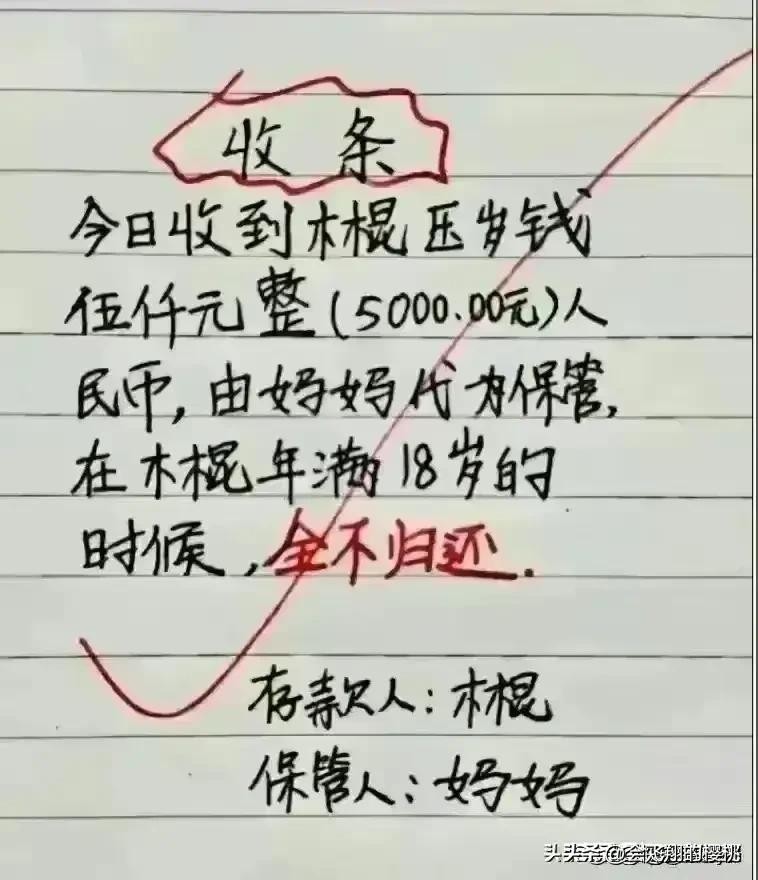 收条
今日收到木棍压岁钱
伍仟元整(5000.00元)人
民币,由妈妈代为保管,
在木棍年满18岁的
时候,全不归还.
存款人:木棍
保管人:妈妈